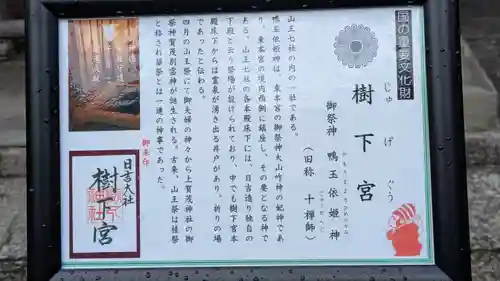 国の重要文化財
樹下宮
じゅげぐう
御祭神 鴨玉依姫神
かもたまよりひめのかみ
（旧称 十禅師）
山王七社の内の一社である。
鴨玉依姫神は、東本宮の御祭神大山咋神の妃神であ
り、東本宮の境内西側に鎮座し、その要となる神で
ある。山王七社の各本殿床下には、日吉造り独自の
下殿と云う祭場が設けられており、中でも樹下宮本
殿床下からは霊泉が湧き出る井戸があり、祈りの場
であったと伝わる。
四月の山王祭にて御夫婦の神々から上賀茂神社の御
祭神賀茂別雷神が誕生される。古来、山王祭は桂祭
と称され葵祭とは一連の神事であった。
御朱印
日吉大社
樹下宮